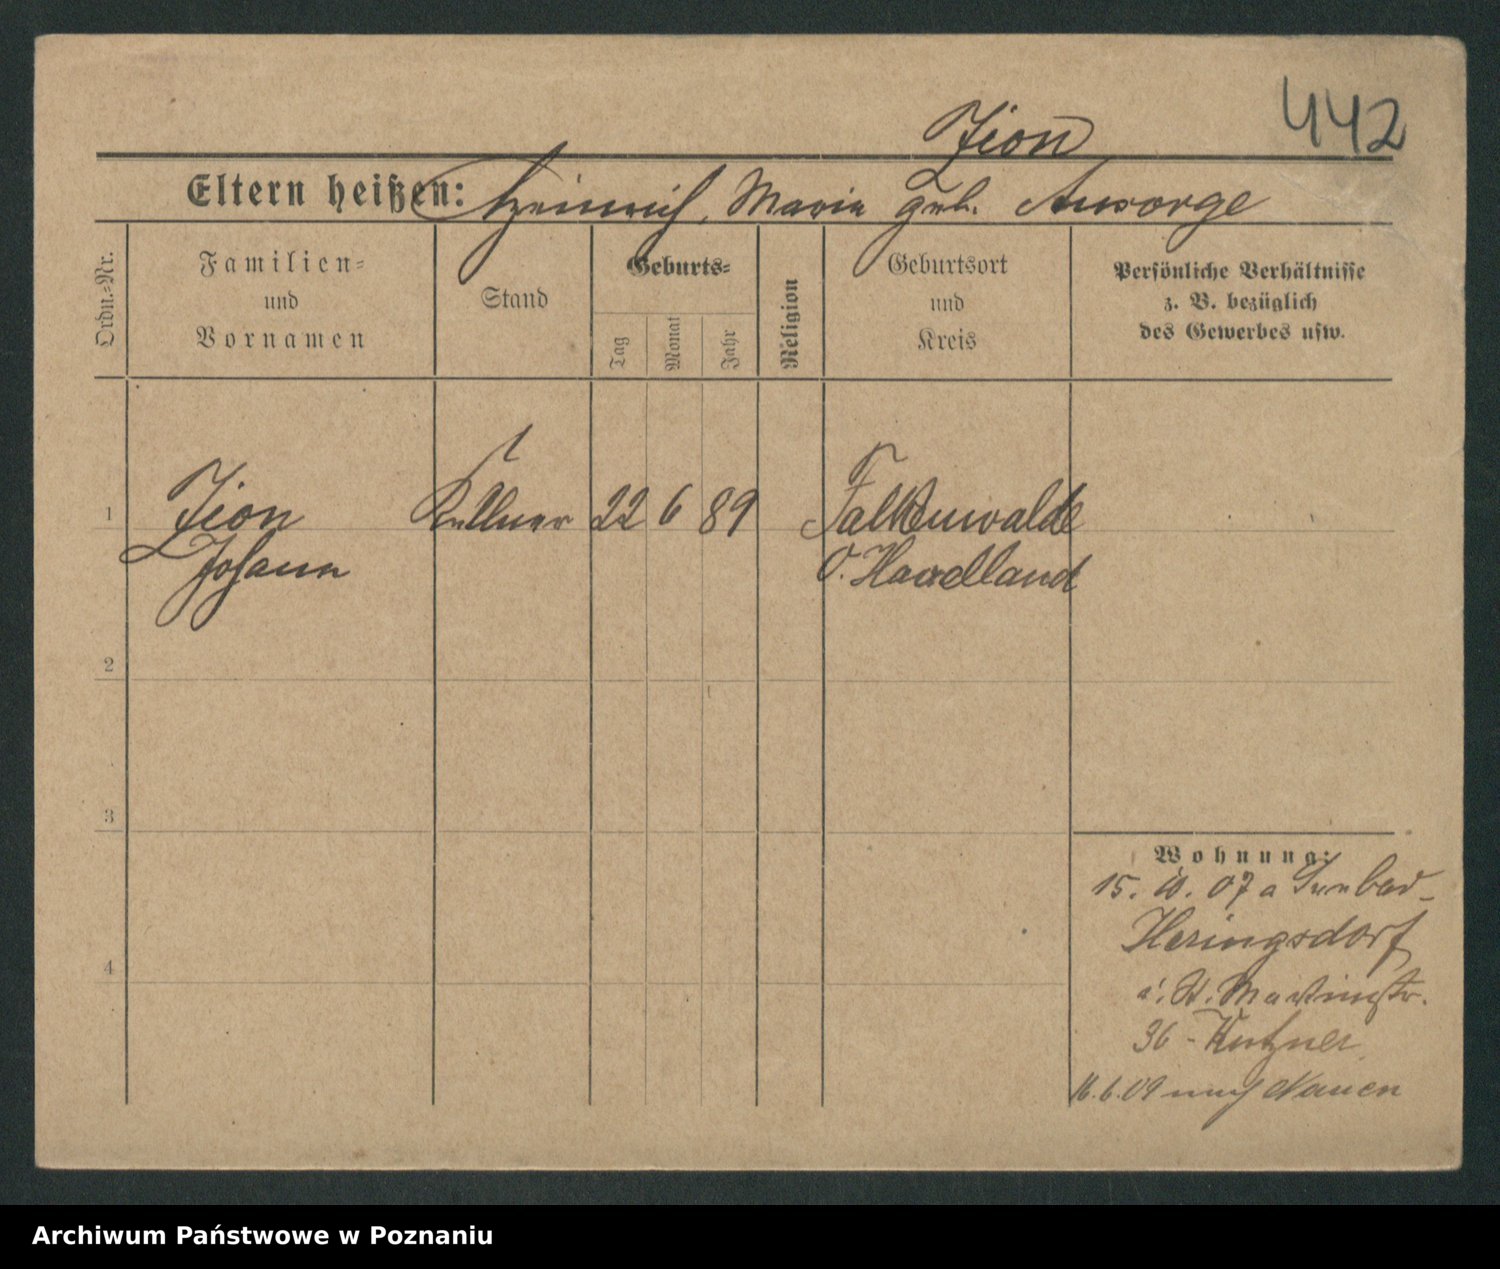 442
Zion
Eltern heißen: Heinrich, Maria geb. Ansorge
Ordn.-Nr.
Familien-
und
Vornamen
Stand
Geburts-
Tag
Monat
Jahr
Religion
Geburtsort
und
Kreis
Persönliche Verhältnisse
z. B. bezüglich
des Gewerbes usw.
1
Zion
Johann
Kellner
22
6
89
Falkenwalde
O. Havelland
2
3
4
Wohnung:
15. 10. 07 a Seebad-
Heringsdorf
a. St. Martinstr.
36 - Kutzner
16.6.09 nach Nauen
Archiwum Państwowe w Poznaniu